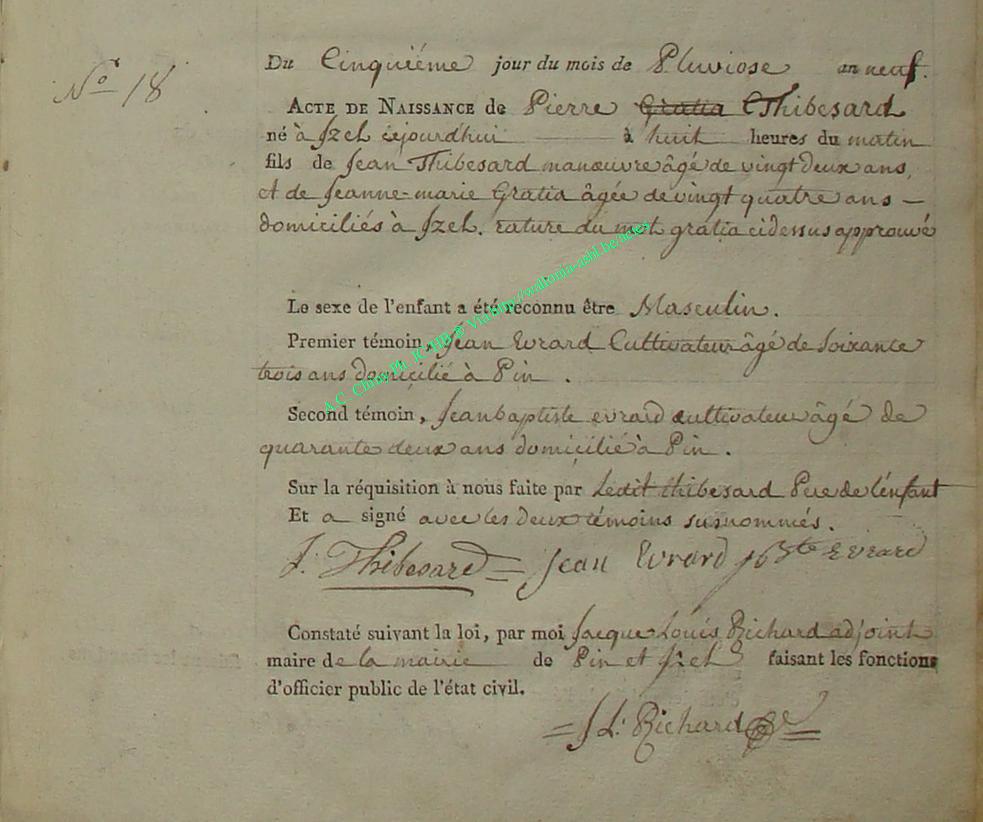 No 18
Du Cinquiéme jour du mois de Pluviose an neuf.
ACTE DE NAISSANCE de Pierre Gratia Thibesard
né à Izel cejourdhui à huit heures du matin
fils de Jean Thibesard manœuvre âgé de vingt deux ans,
et de Jeanne-marie Gratia âgée de vingt quatre ans —
domiciliés à Izel. rature du mot gratia cidessus approuvé
Le sexe de l'enfant a été reconnu être Masculin.
Premier témoin, Jean Evrard Cultivateur âgé de soixante
trois ans domicilié à Pin.
Second témoin, Jeanbaptiste evrard cultivateur âgé de
quarante deux ans domicilié à Pin.
Sur la réquisition à nous faite par Ledit thibesard Pere de l'enfant
Et a signé avec les deux témoins susnommés.
J. Thibesard = Jean Evrard jbte Evrard
Constaté suivant la loi, par moi Jacque Louis Richard adjoint
maire de la mairie de Pin et Izel faisant les fonctions
d'officier public de l'état civil.
= J L. Richard =